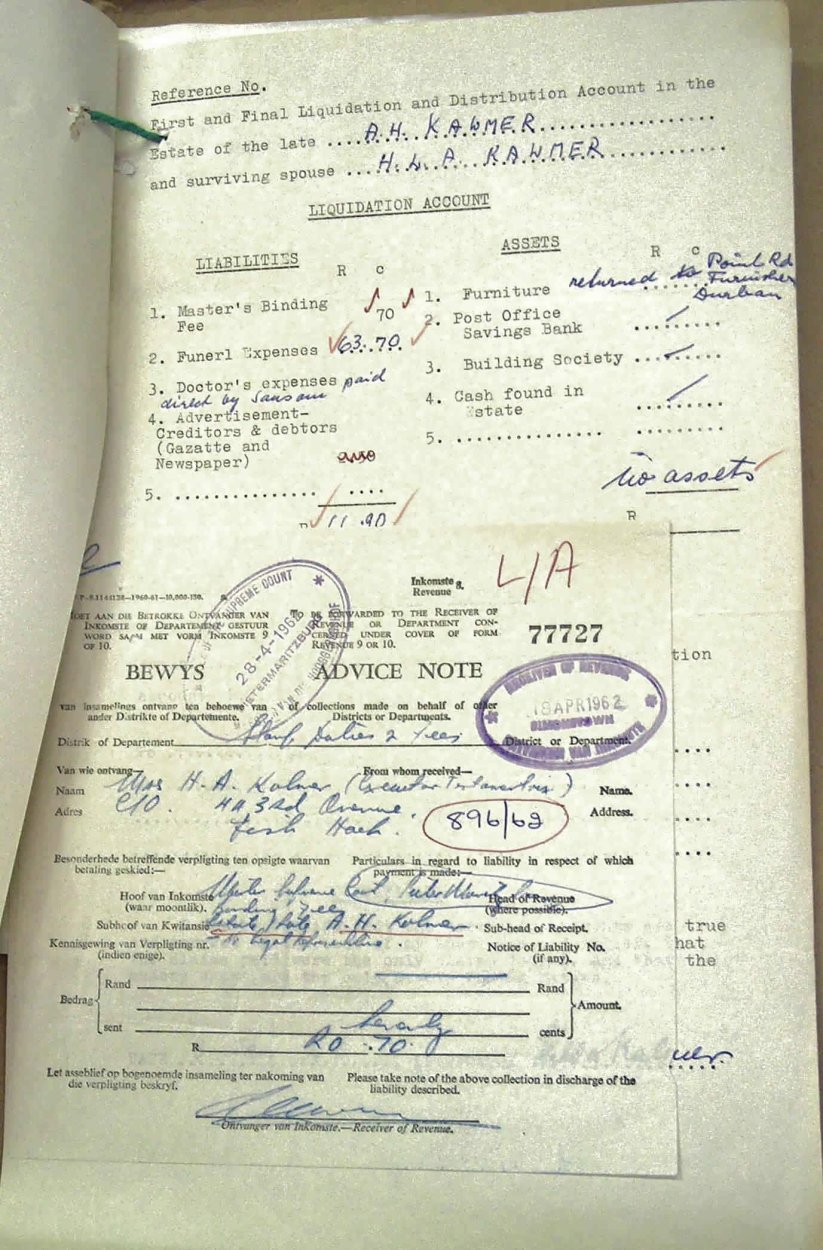 Reference No.
First and Final Liquidation and Distribution Account in the
Estate of the late ....A.H. KALMER....................
and surviving spouse ....H. L. A. KALMER...............
LIQUIDATION ACCOUNT
LIABILITIES
R c
1. Master's Binding Fee 70
2. Funerl Expenses 63.70
3. Doctor's expenses paid
direct by Sansom
4. Advertisement-
Creditors & debtors
(Gazatte and
Newspaper)
5. ................ ....
11.90
ASSETS
R c
1. Furniture returned to Point Rd
Furnisher
Durban
2. Post Office
Savings Bank .........
3. Building Society .........
4. Cash found in
Estate .........
5. ................ .........
no assets
R
L/A
Inkomste
Revenue 8.
1960-61
MOET AAN DIE BETROKKE ONTVANGER VAN
INKOMSTE OF DEPARTEMENT GESTUUR
WORD SAAM MET VORM INKOMSTE 9
OF 10.
TO BE FORWARDED TO THE RECEIVER OF
REVENUE OR DEPARTMENT CON-
CERNED UNDER COVER OF FORM
REVENUE 9 OR 10.
77727
SUPREME COURT
28-4-1962
PIETERMARITZBURG
BEWYS
ADVICE NOTE
RECEIVER OF REVENUE
18 APR 1962
SIMONSTOWN
ONTVANGER VAN INKOMSTE
van insamelings ontvang ten behoewe van
ander Distrikte of Departemente.
of collections made on behalf of other
Districts or Departments.
Distrik of Departement Stamp Duties & Fees District or Department.
Van wie ontvang— From whom received—
Naam Mrs H. A. Kalmer (Executor Testamentrix) Name.
Adres C/O. 4A 3rd Avenue. Address.
Fish Hoek.
896/62
Besonderhede betreffende verpligting ten opsigte waarvan
betaling geskied:—
Particulars in regard to liability in respect of which
payment is made:—
Hoof van Inkomste Master Supreme Court, Head of Revenue
(waar moontlik). (where possible).
Subhoof van Kwitansie Estate Late A. H. Kalmer. Sub-head of Receipt.
Kennisgewing van Verpligting nr.
(indien enige).
Notice of Liability No.
(if any).
Bedrag
Rand Rand
Amount.
sent Seventy cents
R R0.70.
Let asseblief op bogenoemde insameling ter nakoming van
die verpligting beskryf.
Please take note of the above collection in discharge of the
liability described.
Ontvanger van Inkomste.—Receiver of Revenue.
tion
true
hat
the